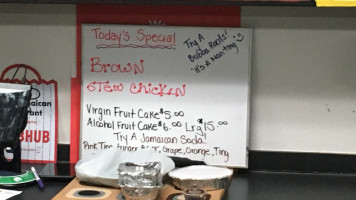 Today's Special
Try A
Bubba Rootsi
"It's A Wan ting
BROWN
STEW CHICKEN
Virgin Fruit Cake $5.00
Alcohol Fruit Cake $6.00 Lrg $15.00
Try A Jamaican Soda
Pink Ting, Ginger, Grape, Orange, Ting
Jamaican
HUB